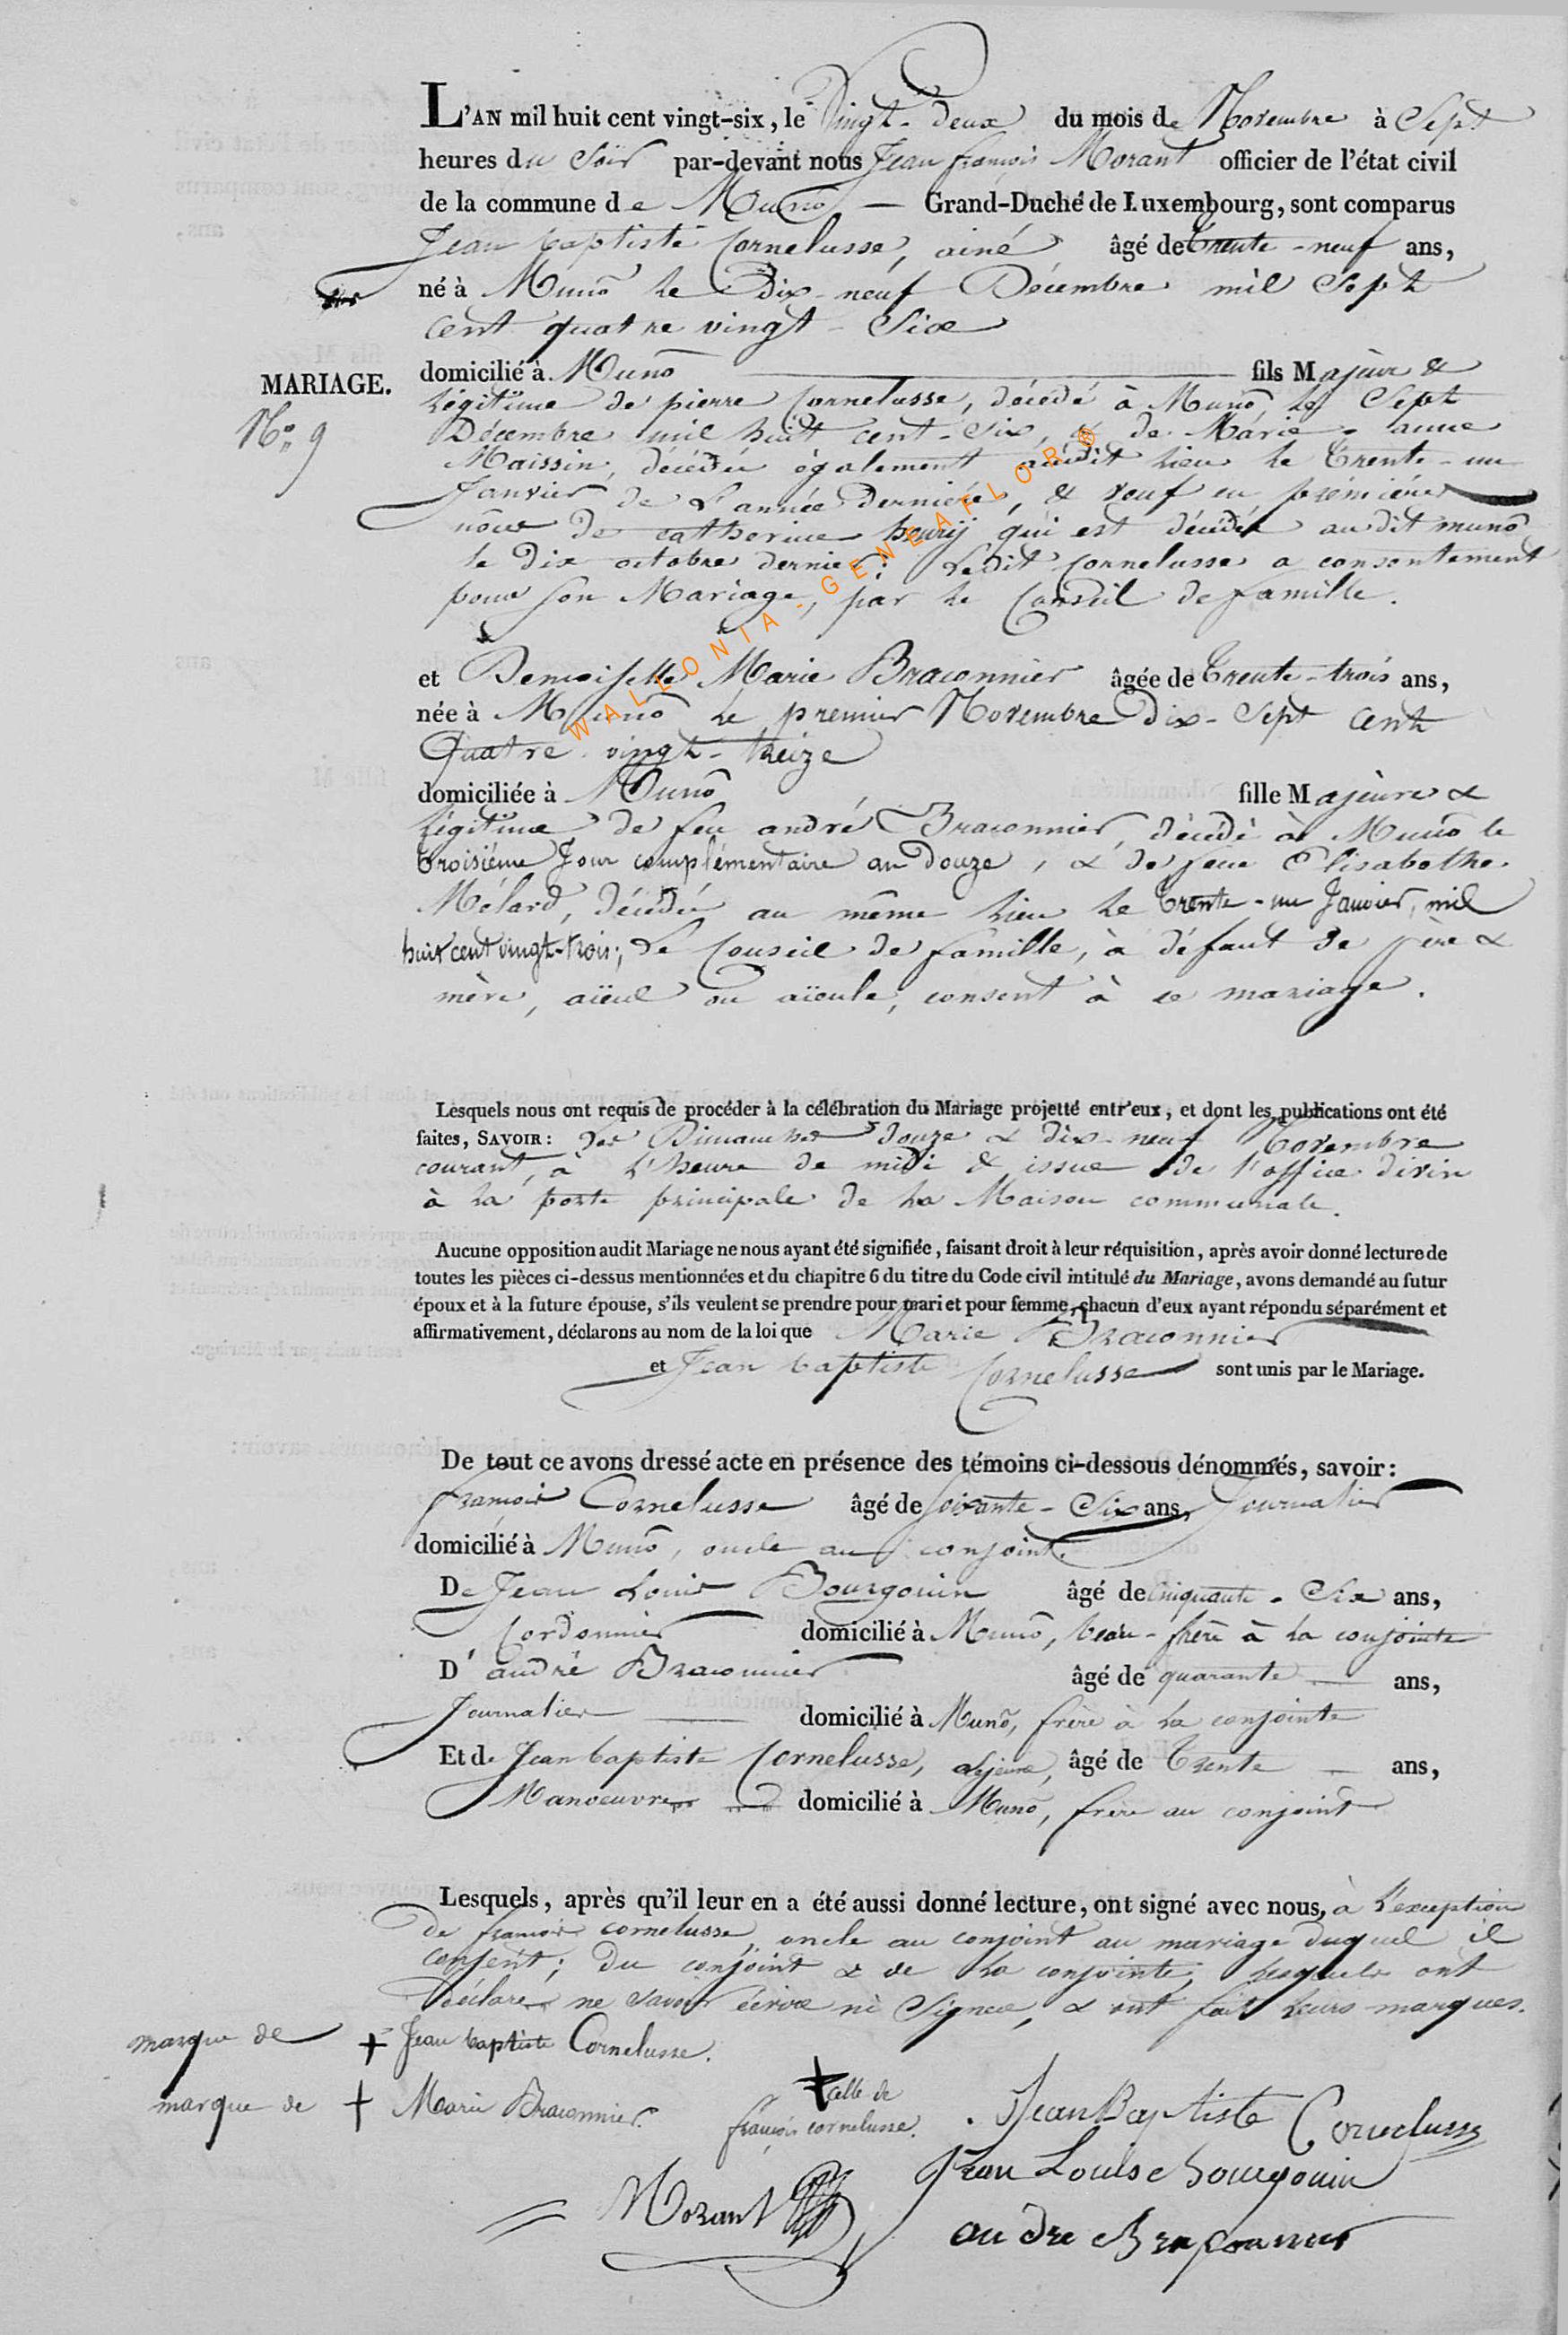 L'AN mil huit cent vingt-six, le Vingt-deux du mois de Novembre à Sept
heures du Soir par-devant nous Jean françois Morant officier de l'état civil
de la commune de Munô — Grand-Duché de Luxembourg, sont comparus
Jean baptiste Cornelusse, ainé âgé de Trente-neuf ans,
né à Munô le Dix-neuf Décembre mil Sept
cent quatre vingt-Six
domicilié à Munô fils Majeur &
MARIAGE.
N.o 9
légitime de pierre Cornelusse, décédé à Munô, le Sept
Décembre mil huit cent-Six, & de Marie-anne
Maissin, décédée également audit lieu le Trente-un
Janvier de L'année dernière, & veuf en premières
nôce de catherine henrÿ qui est décédée audit munô
le Dix octobre dernier: Ledit Cornelusse a consentement
pour son Mariage, par le Conseil de famille.
et Demoiselle Marie Braconnier âgée de Trente-trois ans,
née à Munô le premier Novembre Dix-Sept cent
Quatre vingt-treize
domiciliée à Munô fille Majeure &
légitime de feu andré Braconnier, décédé à Munô le
troisième Jour complémentaire an Douze, & de feue Elisabethe
Mélard, décédée au même lieu le trente-un Janvier, mil
huit cent vingt-trois; Le Conseil de famille, à défaut de père &
mère, aïeul ou aïeule, consent à ce mariage.
Lesquels nous ont requis de procéder à la célébration du Mariage projetté entr'eux, et dont les publications ont été
faites, SAVOIR: Les Dimanches douze & dix-neuf Novembre
courant, à L'heure de midi & issue de l'office divin
à la porte principale de la Maison communale.
Aucune opposition audit Mariage ne nous ayant été signifiée, faisant droit à leur réquisition, après avoir donné lecture de
toutes les pièces ci-dessus mentionnées et du chapitre 6 du titre du Code civil intitulé du Mariage, avons demandé au futur
époux et à la future épouse, s'ils veulent se prendre pour mari et pour femme, chacun d'eux ayant répondu séparément et
affirmativement, déclarons au nom de la loi que Marie Braconnier
et Jean baptiste Cornelusse sont unis par le Mariage.
De tout ce avons dressé acte en présence des témoins ci-dessous dénommés, savoir:
françois Cornelusse âgé de soixante-Six ans, Journalier
domicilié à Munô, oncle au conjoint.
De Jean Louis Bourgouin âgé de Cinquante-Six ans,
Cordonnier domicilié à Munô, beau-frère à la conjointe
D'andré Braconnier âgé de quarante — ans,
Journalier — domicilié à Munô, frère à la conjointe
Et de Jean baptiste Cornelusse, Lejeune, âgé de Trente — ans,
Manoeuvre domicilié à Munô, frère au conjoint
Lesquels, après qu'il leur en a été aussi donné lecture, ont signé avec nous, à L'exception
de françois cornelusse, oncle au conjoint au mariage duquel il
consent; Du conjoint & de la conjointe, lesquels ont
Déclaré ne savoir écrire ni Signer, & ont fait leurs marques.
marque de + Jean baptiste Cornelusse.
marque de + Marie Braconnier.
+ celle de
françois cornelusse.
Jean Baptiste Cornelusse
Jean Louise bourgouin
Morant
andre Braconnier
WALLONIA-GENEAFLOR®